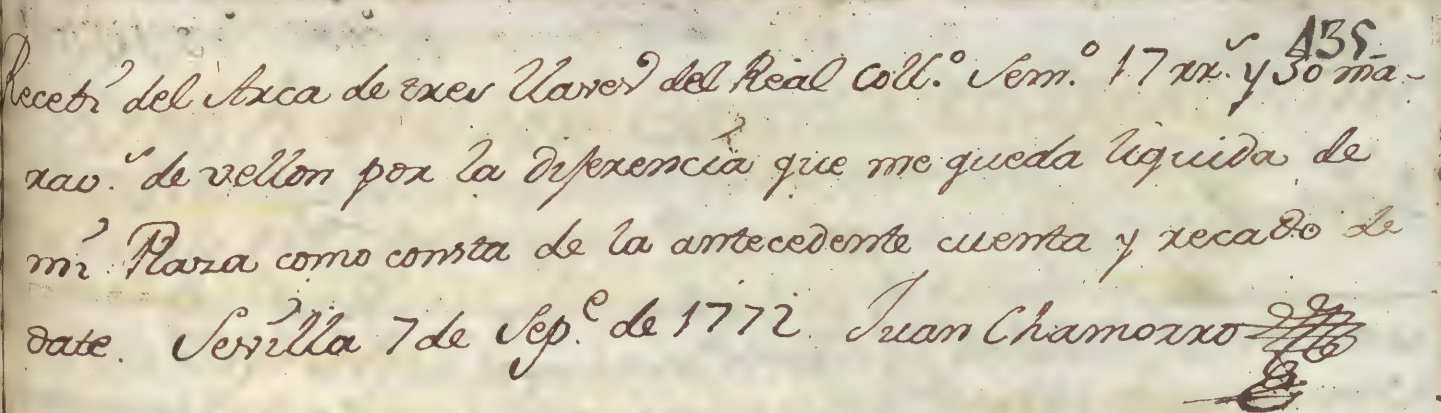 135
Receti del Arca de tres llaves del Real Coll.º Sem.º 17 rr.s y 30 ma-
rav.s de vellon por la diferencia que me queda liquida de
mi Plaza como consta de la antecedente cuenta y recado de
date. Sevilla 7 de Sep.e de 1772. Juan Chamorro